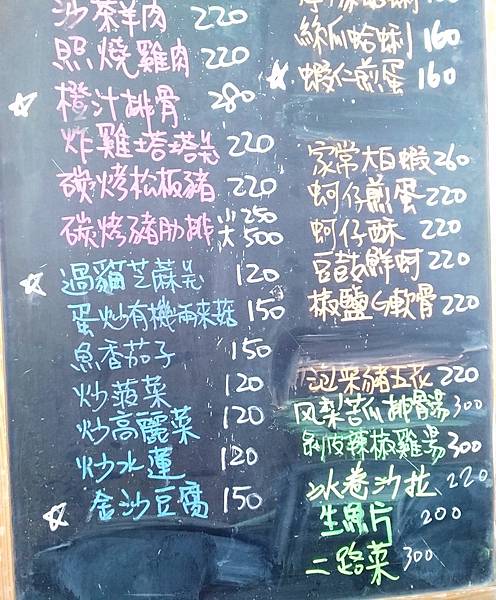 沙茶羊肉 220
照燒雞肉 220
橙汁排骨 280
炸雞塔塔羌 220
碳烤松板豬 220
碳烤豬肋排 小250 大500
過貓芝蔴羌 120
蛋炒有機雨來菇 150
魚香茄子 150
炒菠菜 120
炒高麗菜 120
炒水蓮 120
金沙豆腐 150
絲瓜蛤蜊 160
蝦仁煎蛋 160
家常大白蝦 260
蚵仔煎蛋 220
蚵仔酥 220
豆鼓鮮蚵 220
椒鹽G軟骨 220
泡菜豬五花 220
风梨苦瓜排骨湯 300
剝皮辣椒雞湯 300
冰卷沙拉 220
生魚片 200
二路菜 300